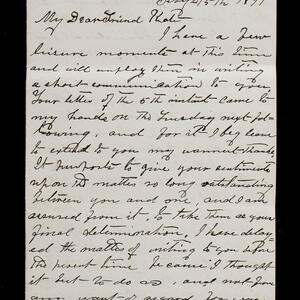 My Dear Friend
I have a few
leisure moments at this time
and will employ them in writing
a short communication to you.
Your letter of the 5th instant came to
my hands on the Tuesday next fol-
lowing, and for it I beg leave
to extend to you my warmest thanks.
It purports to give your sentiments
upon the matter so long outstanding
between you and me, and I am
assured from it, to take them as your
final determination. I have delay-
ed the matter of writing to you before
the present time because I thought
it best to do so, and not for
any want of regard for you